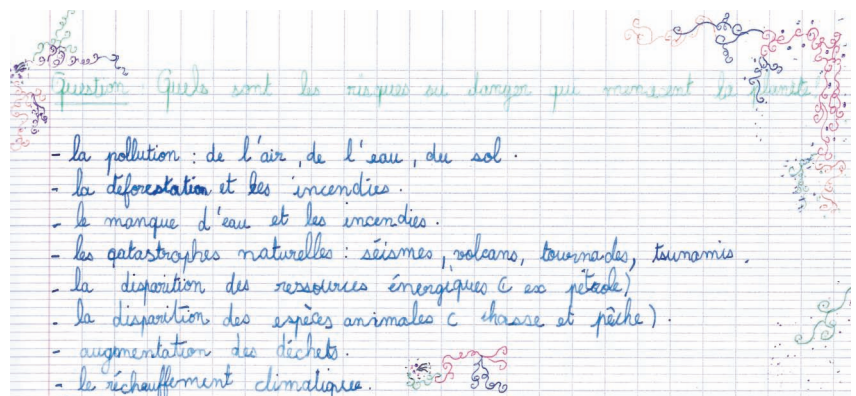 Question : Quels sont les risques ou danger qui menacent la planète
- la pollution : de l'air, de l'eau, du sol.
- la déforestation et les incendies.
- le manque d'eau et les incendies.
- les catastrophes naturelles : séismes, volcans, tournades, tsunamis.
- la disparition des ressources énergiques ( ex pétrole)
- la disparition des espèces animales ( chasse et pêche).
- augmentation des déchets.
- le réchauffement climatique.